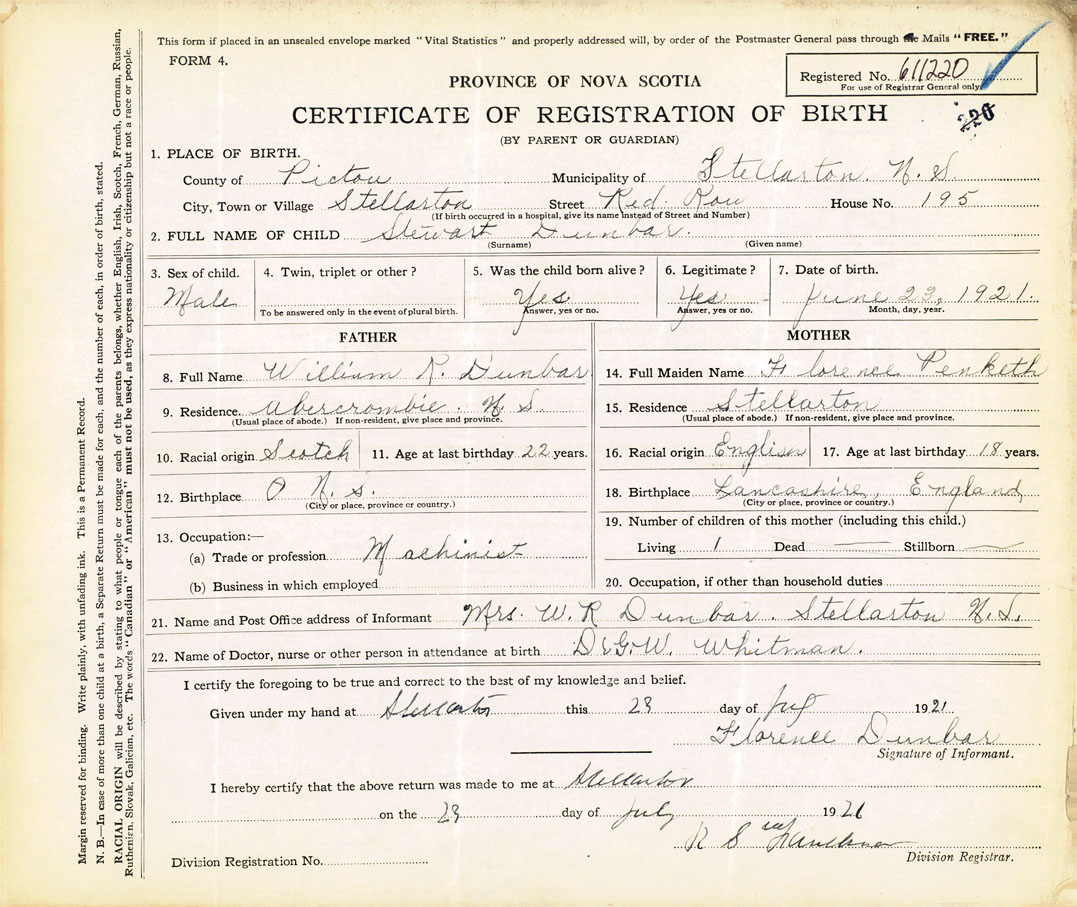 This form if placed in an unsealed envelope marked "Vital Statistics" and properly addressed will, by order of the Postmaster General pass through the Mails "FREE."
FORM 4.
Registered No. 611220
For use of Registrar General only.
220
PROVINCE OF NOVA SCOTIA
CERTIFICATE OF REGISTRATION OF BIRTH
(BY PARENT OR GUARDIAN)
1. PLACE OF BIRTH.
County of Pictou Municipality of Stellarton N. S.
City, Town or Village Stellarton Street Red Row House No. 195
(If birth occurred in a hospital, give its name instead of Street and Number)
2. FULL NAME OF CHILD Stewart Dunbar.
(Surname) (Given name)
3. Sex of child. 4. Twin, triplet or other? 5. Was the child born alive? 6. Legitimate? 7. Date of birth.
Male Yes Yes June 23, 1921.
To be answered only in the event of plural birth. Answer, yes or no. Answer, yes or no. Month, day, year.
FATHER
8. Full Name William R. Dunbar
9. Residence. Abercrombie. N. S.
(Usual place of abode.) If non-resident, give place and province.
10. Racial origin Scotch 11. Age at last birthday 22 years.
12. Birthplace N. S.
(City or place, province or country.)
13. Occupation:—
(a) Trade or profession Machinist
(b) Business in which employed
MOTHER
14. Full Maiden Name Florence Penketh
15. Residence Stellarton
(Usual place of abode.) If non-resident, give place and province.
16. Racial origin English 17. Age at last birthday 18 years.
18. Birthplace Lancashire, England
(City or place, province or country.)
19. Number of children of this mother (including this child.)
Living 1 Dead — Stillborn —
20. Occupation, if other than household duties
21. Name and Post Office address of Informant Mrs. W. R Dunbar. Stellarton N. S.
22. Name of Doctor, nurse or other person in attendance at birth Dr G. W. Whitman.
I certify the foregoing to be true and correct to the best of my knowledge and belief.
Given under my hand at Stellarton this 23 day of July 1921
Florence Dunbar
Signature of Informant.
I hereby certify that the above return was made to me at Stellarton
on the 23 day of July 1921
R S
Division Registrar.
Division Registration No.
Margin reserved for binding. Write plainly, with unfading ink. This is a Permanent Record.
N. B.—In case of more than one child at a birth, a Separate Return must be made for each, and the number of each, in order of birth, stated.
RACIAL ORIGIN will be described by stating to what people or tongue each of the parents belongs, whether English, Irish, Scotch, French, German, Russian,
Ruthenian, Slovak, Galician, etc. The words "Canadian" or "American" must not be used, as they express nationality or citizenship but not a race or people.